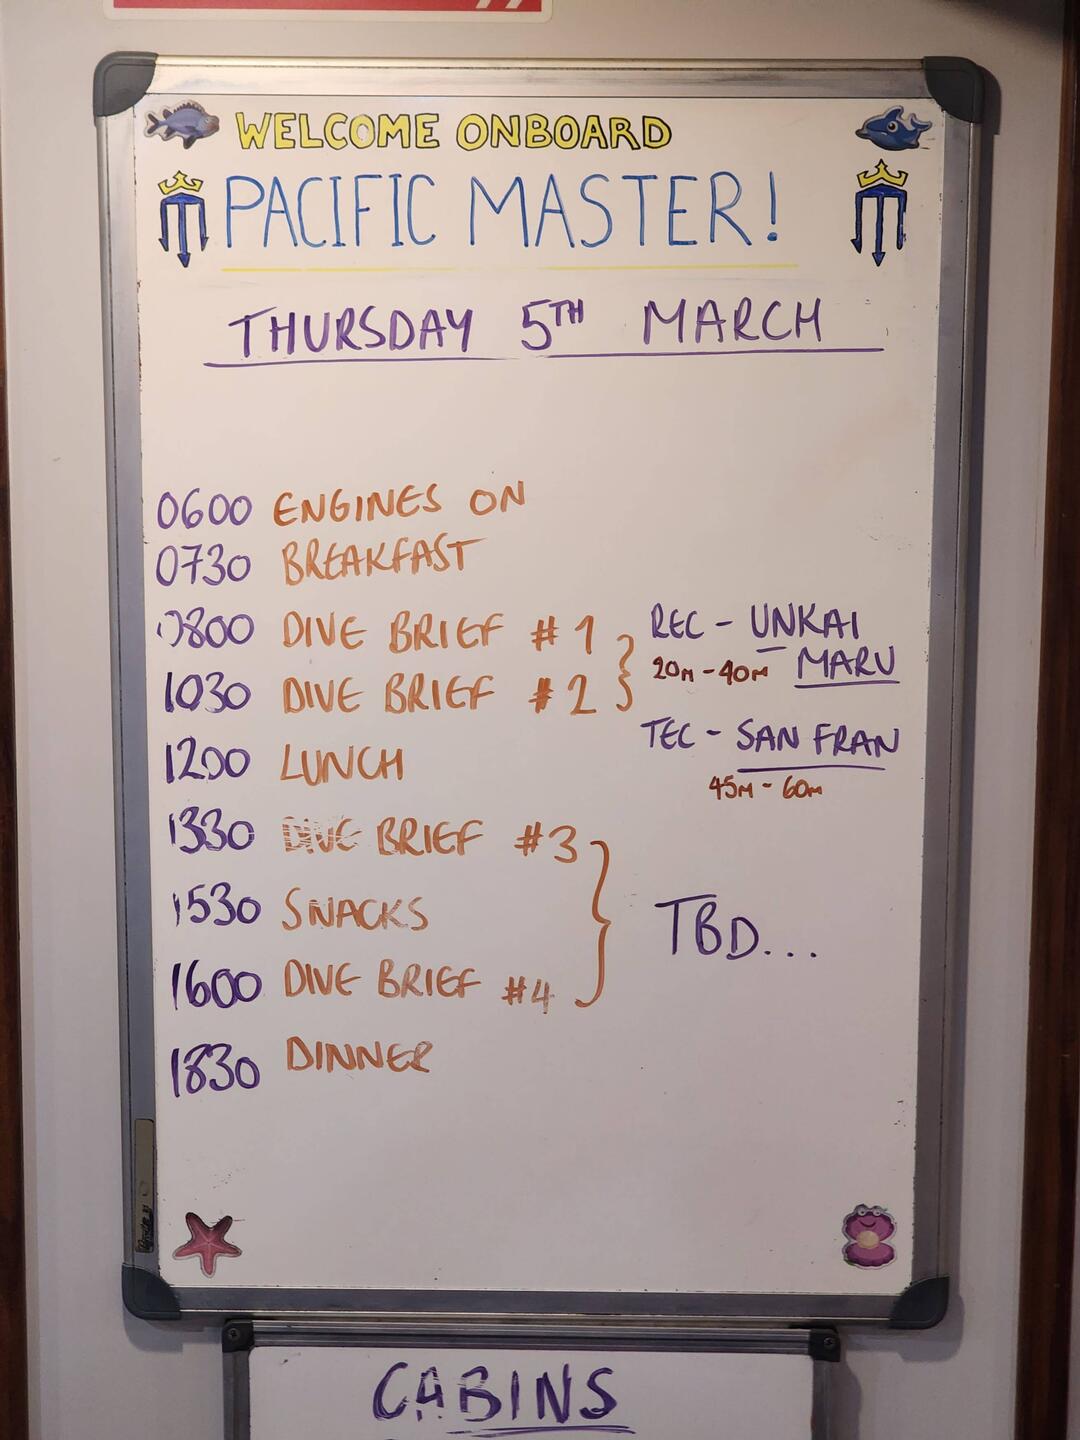 WELCOME ONBOARD
PACIFIC MASTER!
THURSDAY 5TH MARCH
0600 ENGINES ON
0730 BREAKFAST
0800 DIVE BRIEF #1
1030 DIVE BRIEF #2
REC - UNKAI
20M - 40M MARU
TEC - SAN FRAN
45M - 60M
1200 LUNCH
1330 DIVE BRIEF #3
1530 SNACKS
1600 DIVE BRIEF #4
TBD...
1830 DINNER
CABINS